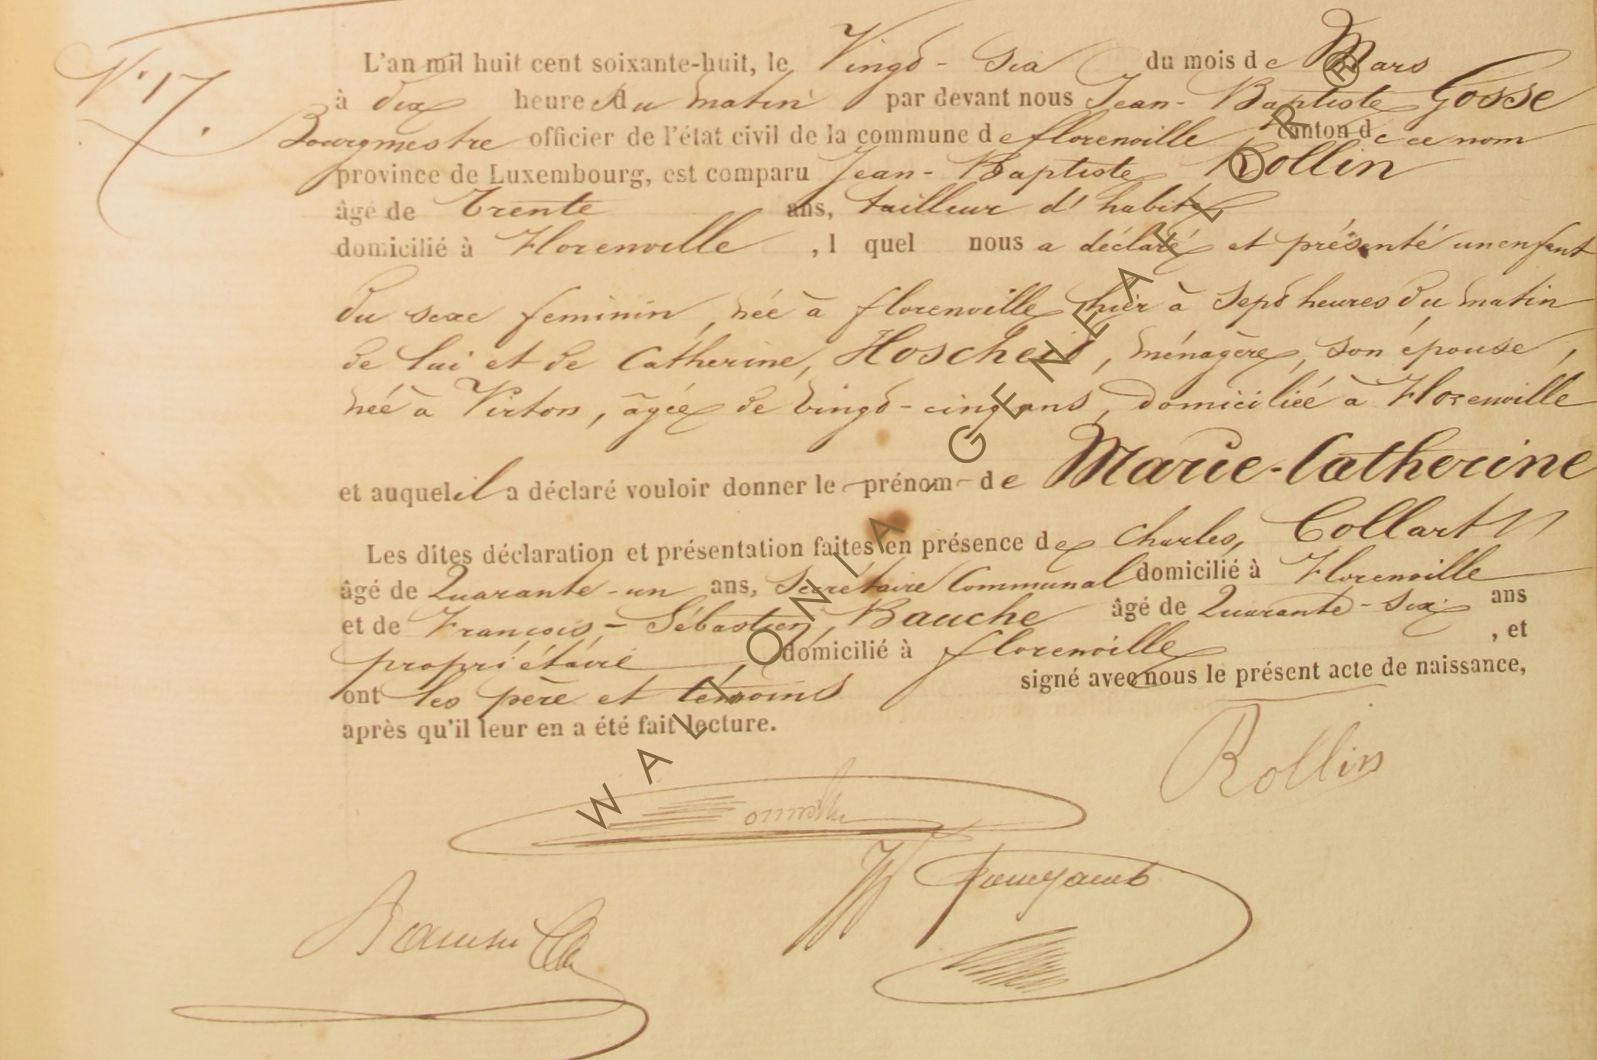 N° 17.
L'an mil huit cent soixante-huit, le Vingt-Six du mois de Mars
à dix heures du matin par devant nous Jean-Baptiste Gosse
Bourgmestre officier de l'état civil de la commune de florenville canton de ce nom
province de Luxembourg, est comparu Jean-Baptiste Rollin
âgé de Trente ans, tailleur d'habits
domicilié à Florenville, l quel nous a déclaré et présenté un enfant
du sexe feminin, née à florenville hier à Sept heures du matin
de lui et de Catherine, Hoscheit, ménagère, son épouse,
née à Virton, âgée de vingt-cinq ans, domiciliée à Florenville
et auquel il a déclaré vouloir donner le prénom de Marie-Catherine
Les dites déclaration et présentation faites en présence de Charles, Collart
âgé de Quarante-un ans, Secrétaire Communal domicilié à Florenville
et de François-Sébastien, Bauche âgé de Quarante-six ans
propriétaire, domicilié à florenville, et
ont les père et témoins signé avec nous le présent acte de naissance,
après qu'il leur en a été fait lecture.
Rollin
WALLONIA GENEALOR®